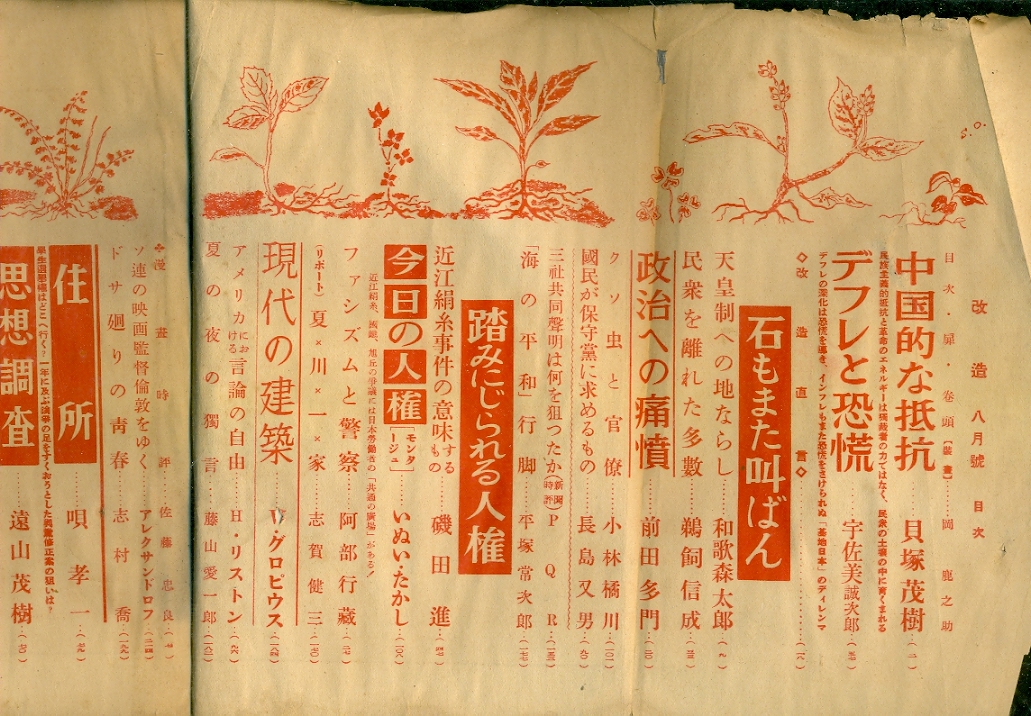 改造 八月號 目次
目次・扉・巻頭〔裝畫〕……岡鹿之助
中国的な抵抗……貝塚茂樹
民族主義的抵抗と革命のエネルギーは獨裁者の力ではなく、民衆の土壌の中に育くまれる
デフレと恐慌……宇佐美誠次郎
デフレの深化は恐慌を導き、インフレもまた恐慌をさけられぬ「基地日本」のディレンマ
◇改造直言◇
石もまた叫ばん
天皇制への地ならし……和歌森太郎
民衆を離れた多數……鵜飼信成
政治への痛憤……前田多門
クソ虫と官僚……小林橘川
國民が保守黨に求めるもの……長島又男
三社共同聲明は何を狙つたか(新聞時評) P Q R
「海の平和」行脚……平塚常次郎
踏みにじられる人権
近江絹糸事件の意味するもの……磯田進
今日の人権[モンタージュ]……いぬい・たかし
近江絹糸、旭丘の爭議には日本勞働者の「共通の廣場」がある!
ファシズムと警察……阿部行藏
(リポート)夏×川×一×家……志賀健三
現代の建築……W・グロピウス
アメリカにおける言論の自由……H・リストン
夏の夜の獨言……藤山愛一郎
漫畫時評……佐藤忠良
ソ連の映画監督倫敦をゆく……アレクサンドロフ
ドサ廻りの靑春……志村喬
住所……唄孝一
學生選擧權はどこへ行く?
思想調査……遠山茂樹
S.O.